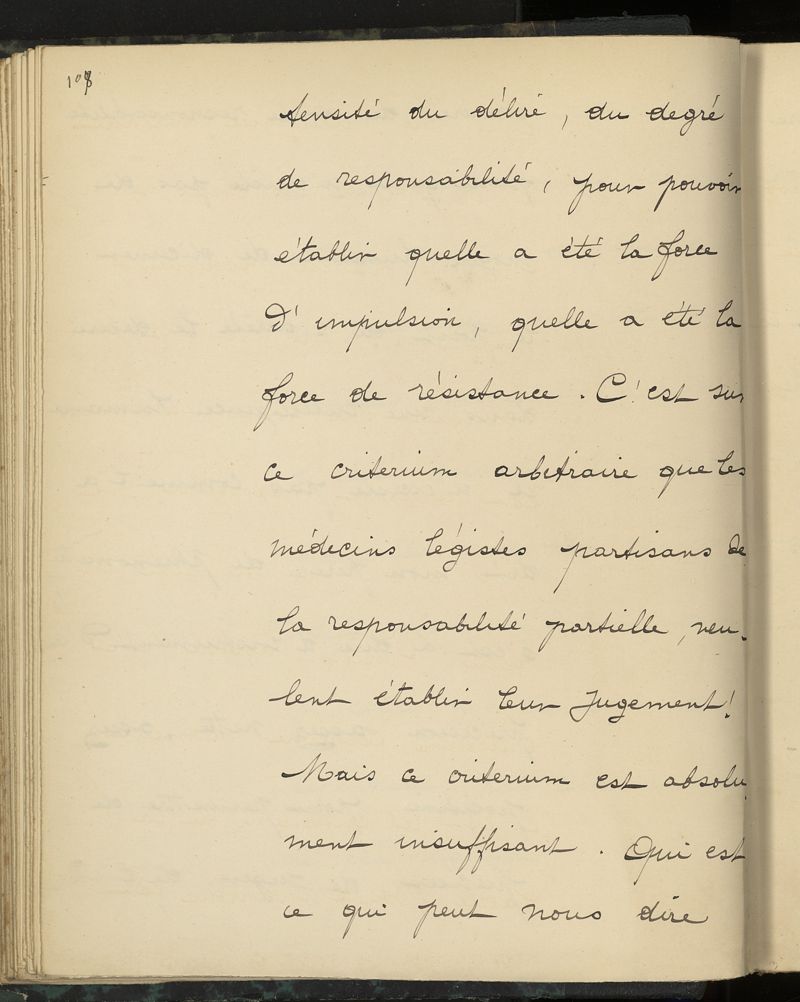 108
tensité du délire, du degré
de responsabilité, pour pouvoir
établir quelle a été la force
d'impulsion, quelle a été la
force de résistance. C'est sur
ce criterium arbitraire que les
médecins légistes partisans de
la responsabilité partielle, veu-
lent établir leur jugement!
Mais ce criterium est absolu
ment insuffisant. Qui est
ce qui peut nous dire